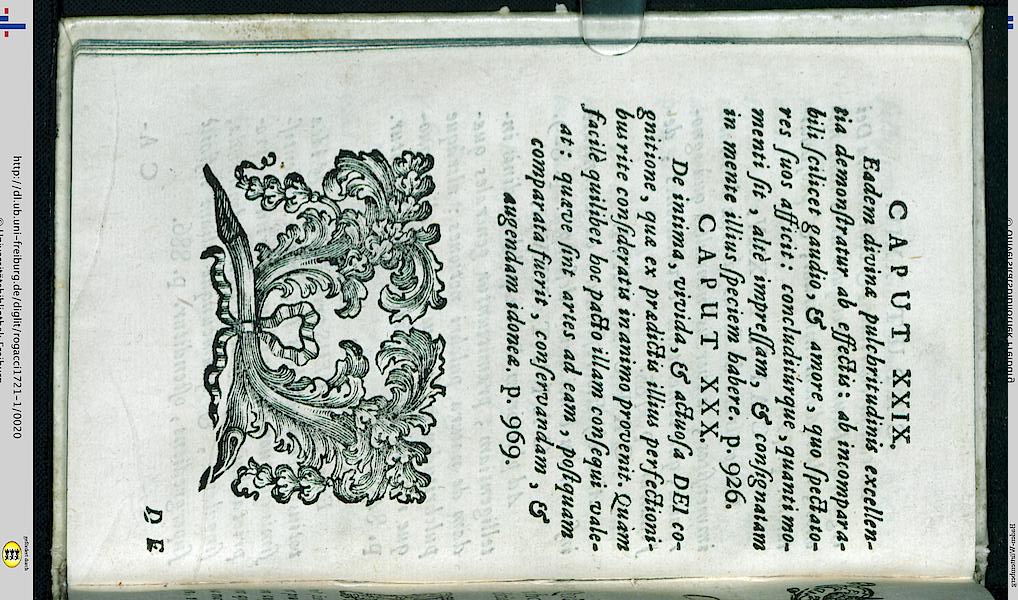 CAPUT XXIX.
Eadem divinæ pulchritudinis excellen-
tia demonſtratur ab effectis: ab incompara-
bili ſcilicet gaudio, & amore, quo ſpectato-
res ſuos afficit: concluditúrque, quanti mo-
menti ſit, altè impreſſam, & conſignatam
in mente illius ſpeciem habere. p. 926.
CAPUT XXX.
De intima, vivida, & actuoſa DEI co-
gnitione, quæ ex prædictis illius perfectioni-
bus rite conſideratis in animo provenit. Quàm
facilè quilibet hoc pacto illam conſequi vale-
at: quæve ſint artes ad eam, poſtquam
comparata fuerit, conſervandam, &
augendam idoneæ. p. 969.
DE
http://dl.ub.uni-freiburg.de/diglit/rogacci1721-1/0020
© Universitätsbibliothek Freiburg